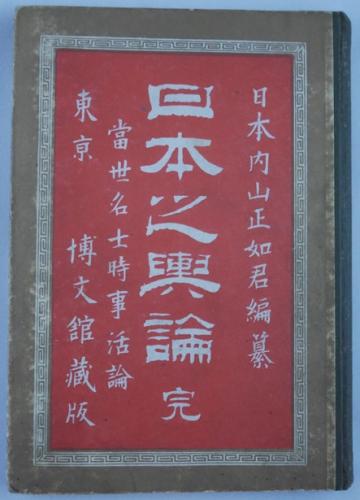 日本内山正如君編纂
日本之輿論 完
當世名士時事活論
東京 博文館藏版